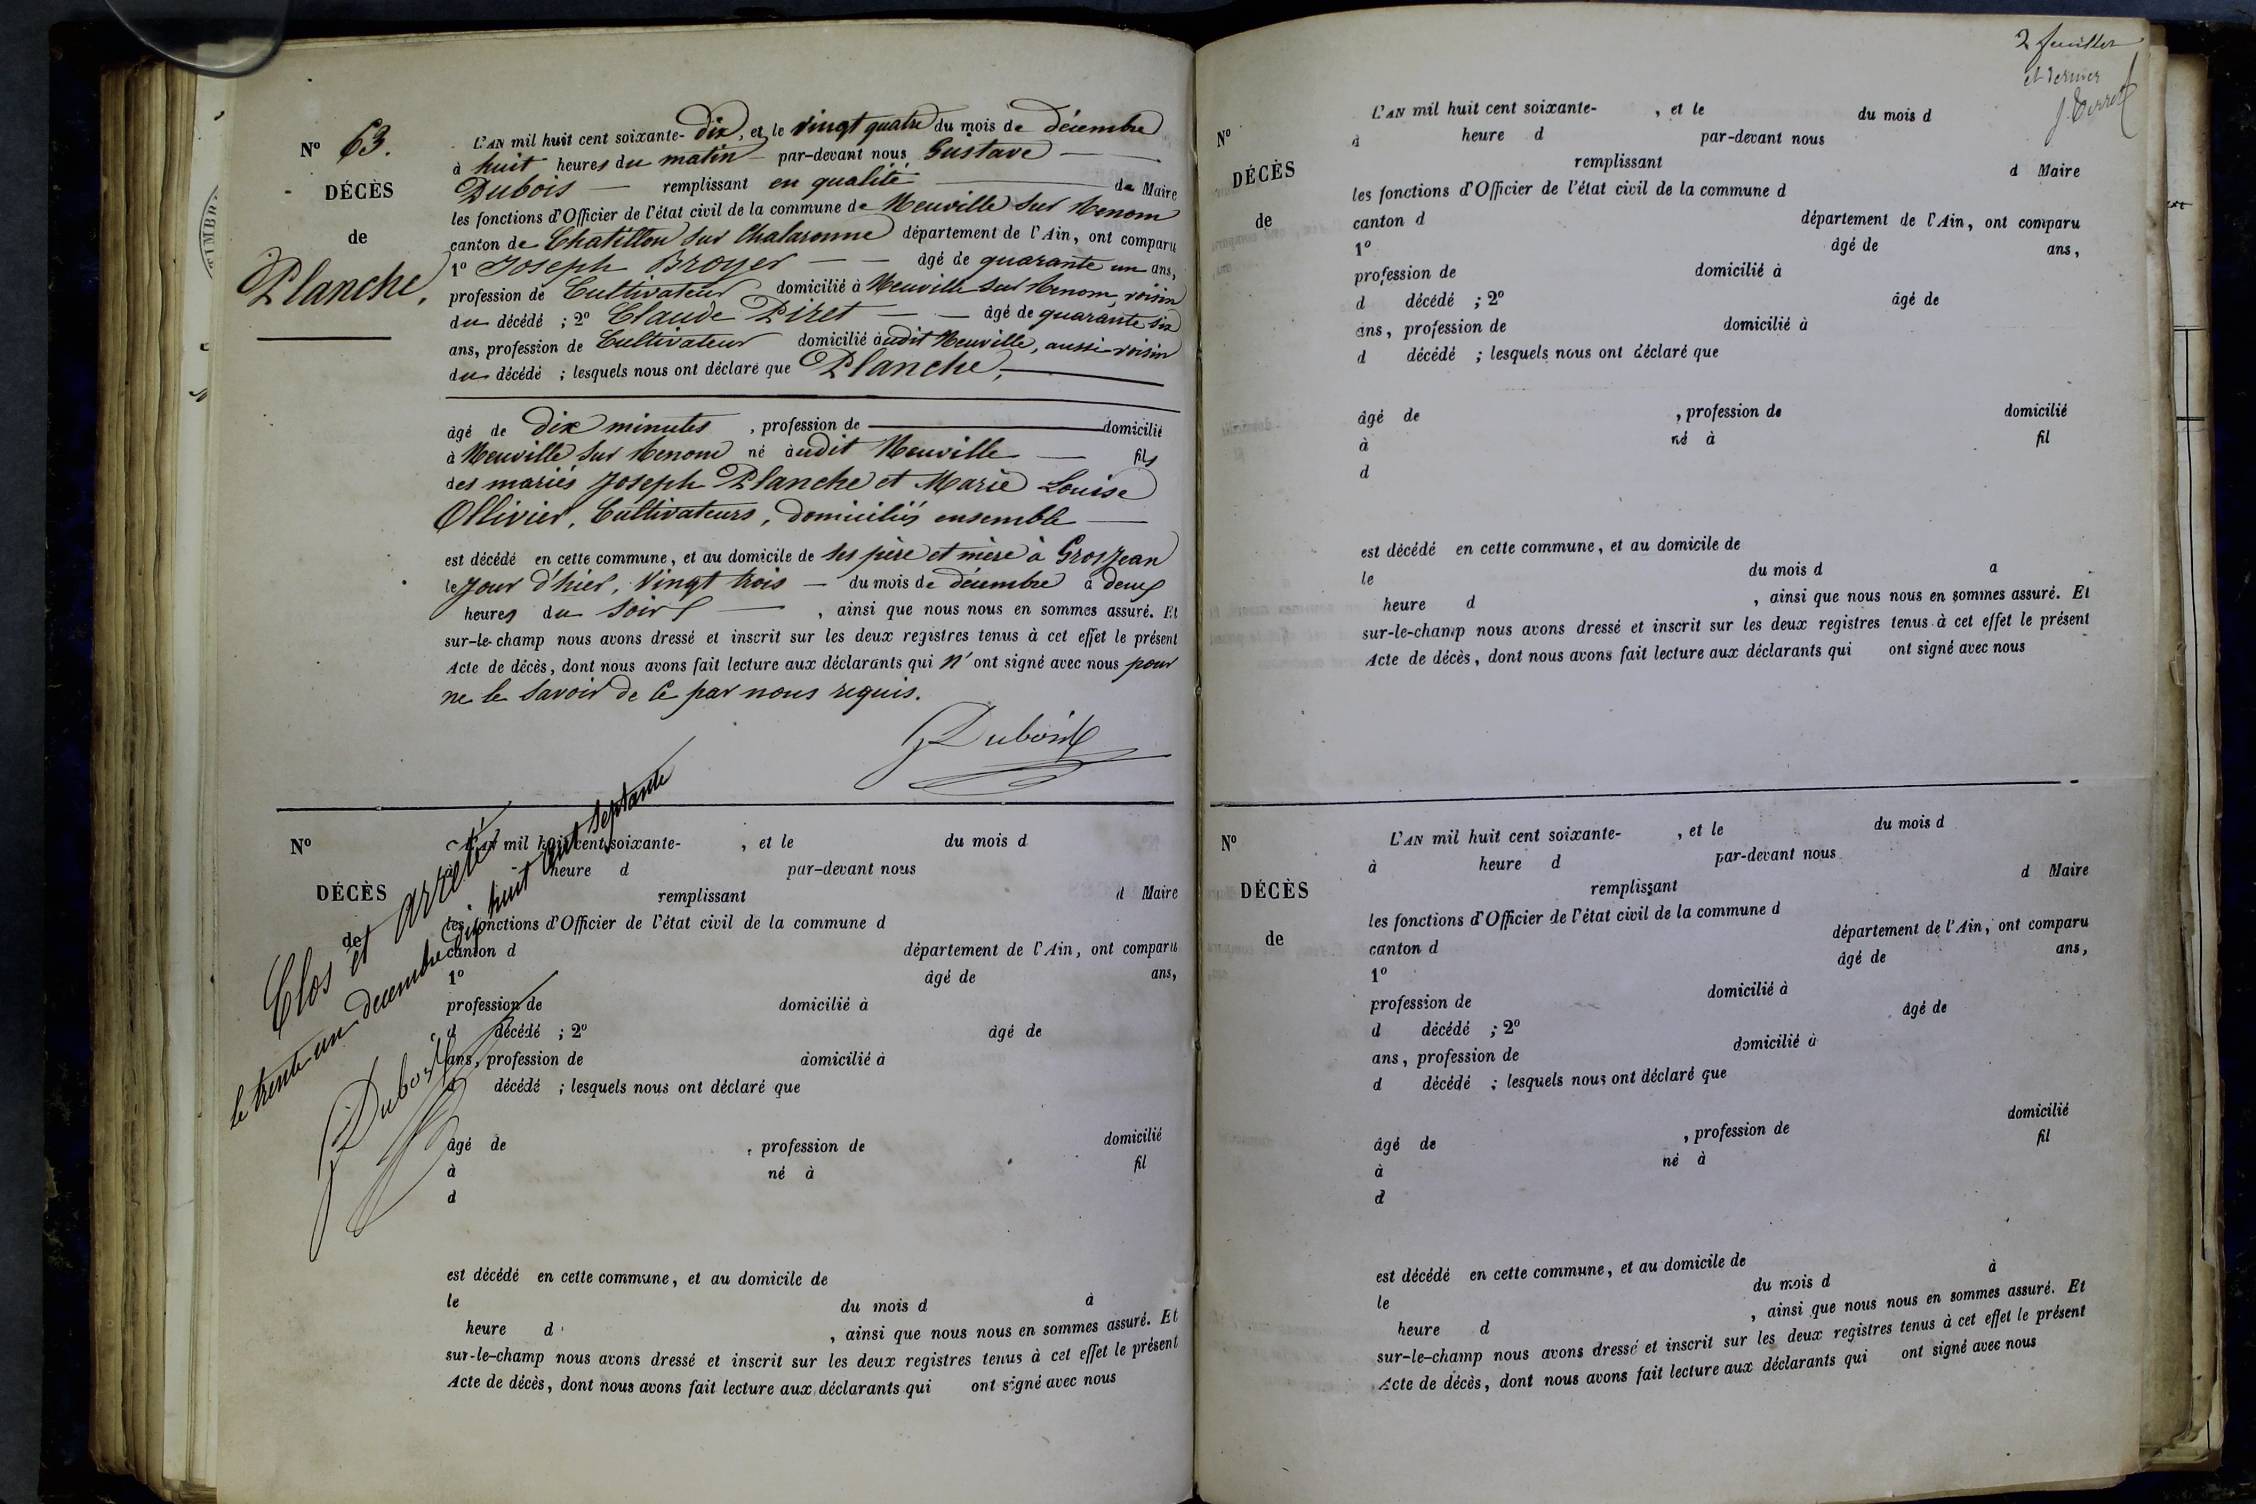 N° 63.
DÉCÈS
de
Planche,
L'AN mil huit cent soixante-dix, et le vingt quatre du mois de décembre
à huit heures du matin par-devant nous Gustave
Dubois remplissant en qualité de Maire
les fonctions d'Officier de l'état civil de la commune de Neuville sur Renom
canton de Chatillon sur Chalaronne département de l'Ain, ont comparu
1° Joseph Broyer âgé de quarante un ans,
profession de Cultivateur domicilié à Neuville sur Renom, voisin
du décédé ; 2° Claude Piret âgé de quarante six
ans, profession de Cultivateur domicilié audit Neuville, aussi voisin
du décédé ; lesquels nous ont déclaré que Planche,
âgé de Dix minutes , profession de domicilié
à Neuville sur Renom né audit Neuville fils
des mariés Joseph Planche et Marie Louise
Ollivier, Cultivateurs, domiciliés ensemble
est décédé en cette commune, et au domicile de ses père et mère à Grosjean
le jour d'hier, vingt trois du mois de décembre à deux
heures du soir , ainsi que nous nous en sommes assuré. Et
sur-le-champ nous avons dressé et inscrit sur les deux registres tenus à cet effet le présent
Acte de décès, dont nous avons fait lecture aux déclarants qui n'ont signé avec nous pour
ne le savoir de ce par nous requis.
G Dubois
N°
DÉCÈS
de
L'AN mil huit cent soixante- , et le du mois d
heure d par-devant nous
remplissant d Maire
les fonctions d'Officier de l'état civil de la commune d
canton d département de l'Ain, ont comparu
1° âgé de ans,
profession de domicilié à
d décédé ; 2° âgé de
ans, profession de domicilié à
d décédé ; lesquels nous ont déclaré que
âgé de , profession de domicilié
à né à fil
d
est décédé en cette commune, et au domicile de
le du mois d à
heure d , ainsi que nous nous en sommes assuré. Et
sur-le-champ nous avons dressé et inscrit sur les deux registres tenus à cet effet le présent
Acte de décès, dont nous avons fait lecture aux déclarants qui ont signé avec nous
Clos et arrêté
le trente un décembre dix huit cent septante
G Dubois
2 feuillet
et dernier
N°
DÉCÈS
de
L'AN mil huit cent soixante- , et le du mois d
à heure d par-devant nous
remplissant d Maire
les fonctions d'Officier de l'état civil de la commune d
canton d département de l'Ain, ont comparu
1° âgé de ans,
profession de domicilié à
d décédé ; 2° âgé de
ans, profession de domicilié à
d décédé ; lesquels nous ont déclaré que
âgé de , profession de domicilié
à né à fil
d
est décédé en cette commune, et au domicile de
le du mois d a
heure d , ainsi que nous nous en sommes assuré. Et
sur-le-champ nous avons dressé et inscrit sur les deux registres tenus à cet effet le présent
Acte de décès, dont nous avons fait lecture aux déclarants qui ont signé avec nous
N°
DÉCÈS
de
L'AN mil huit cent soixante- , et le du mois d
à heure d par-devant nous
remplissant d Maire
les fonctions d'Officier de l'état civil de la commune d
canton d département de l'Ain, ont comparu
1° âgé de ans,
profession de domicilié à
d décédé ; 2° âgé de
ans, profession de domicilié à
d décédé ; lesquels nous ont déclaré que
âgé de , profession de domicilié
à né à fil
d
est décédé en cette commune, et au domicile de
le du mois d à
heure d , ainsi que nous nous en sommes assuré. Et
sur-le-champ nous avons dressé et inscrit sur les deux registres tenus à cet effet le présent
Acte de décès, dont nous avons fait lecture aux déclarants qui ont signé avec nous